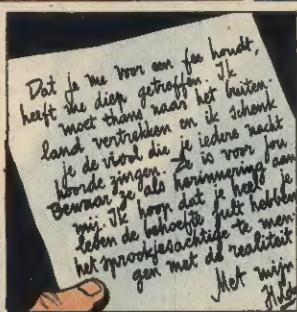 Dat je me voor een fee houdt,
heeft me diep getroffen. Ik
moet thans naar het buiten-
land vertrekken en ik schenk
je de viool die je iedere nacht
hoorde zingen. Ze is voor jou
Bewaar ze als herinnering aan
mij. Ik hoop dat je heel je
leven de behoefte zult hebben
het sprookjesachtige te men-
gen met de realiteit
Met mijn